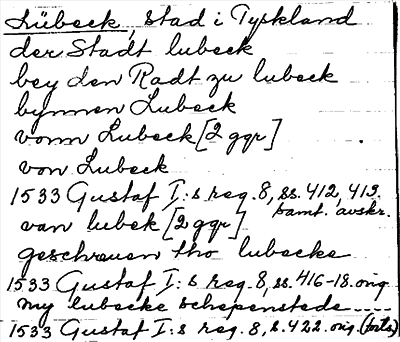 Lübeck, stad i Tyskland
der Stadt lubeck
bey den Radt zu lubeck
bynnen Lubeck
vonn Lubeck [2 ggr]
von Lubeck
1533 Gustaf I:s reg. 8, ss. 412, 413.
samt. avskr.
van lubek [2 ggr]
geschreuen tho lubecke
1533 Gustaf I:s reg. 8, ss. 416-18. orig
my lubecke schepenstede ....
1533 Gustaf I:s reg. 8, s. 422. orig. (forts)